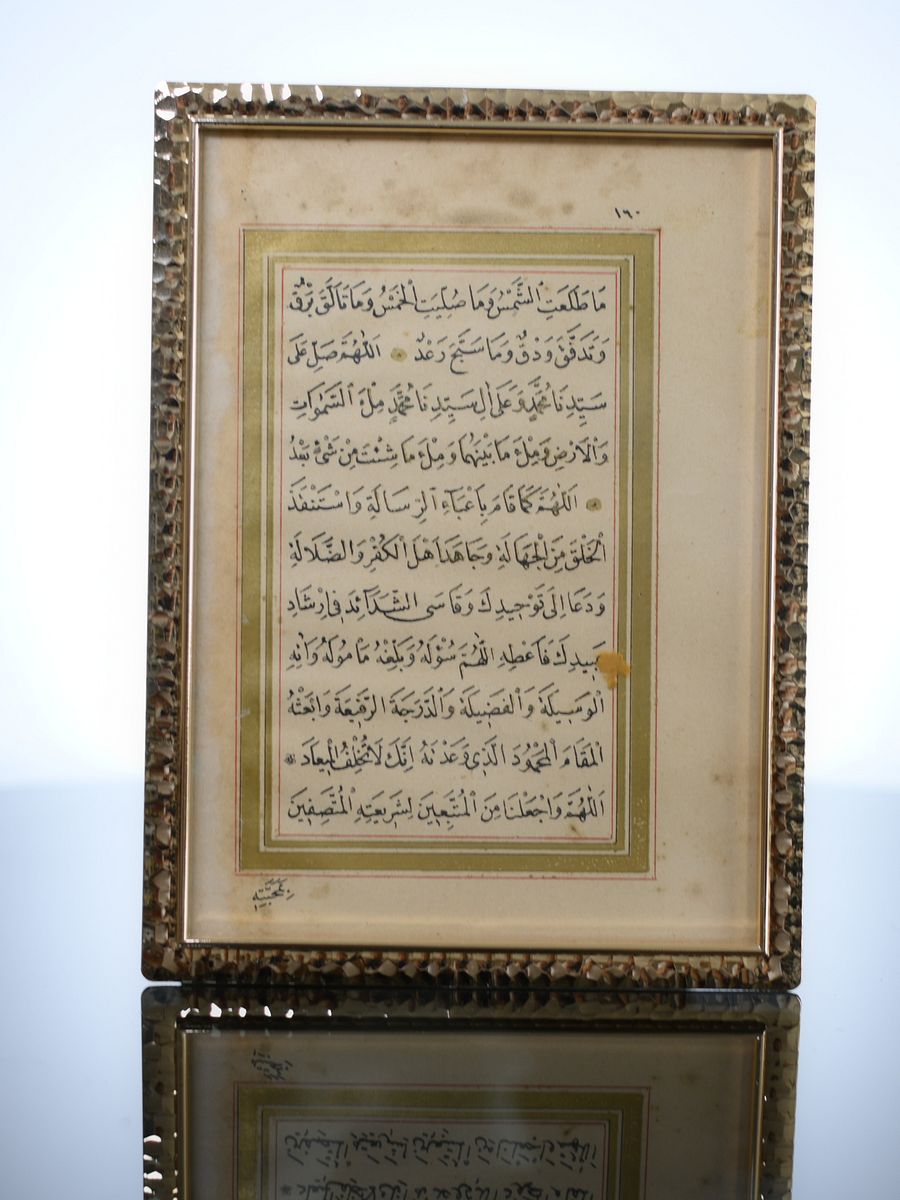 ١٦٠
مَا طَلَعَتِ الشَّمْسُ وَمَا صُلِّيَتِ الْخَمْسُ وَمَا تَاَلَّقَ بَرْقٌ
وَتَدَفَّقَ وَدْقٌ وَمَا سَبَّحَ رَعْدٌ اَللّٰهُمَّ صَلِّ عَلٰى
سَيِّدِنَا مُحَمَّدٍ وَعَلٰى اٰلِ سَيِّدِنَا مُحَمَّدٍ مِلْءَ السَّمٰوَاتِ
وَالْاَرْضِ وَمِلْءَ مَا بَيْنَهُمَا وَمِلْءَ مَا شِئْتَ مِنْ شَىْءٍ بَعْدُ
اَللّٰهُمَّ كَمَا قَامَ بِاَعْبَاءِ الرِّسَالَةِ وَاسْتَنْقَذَ
الْخَلْقَ مِنَ الْجَهَالَةِ وَجَاهَدَ اَهْلَ الْكُفْرِ وَالضَّلَالَةِ
وَدَعَا اِلٰى تَوْحِيدِكَ وَقَاسَى الشَّدَائِدَ فِى اِرْشَادِ
عَبِيدِكَ فَاَعْطِهِ اللّٰهُمَّ سُؤْلَهُ وَبَلِّغْهُ مَاْمُولَهُ وَاٰتِهِ
الْوَسِيلَةَ وَالْفَضِيلَةَ وَالدَّرَجَةَ الرَّفِيعَةَ وَابْعَثْهُ
الْمَقَامَ الْمَحْمُودَ الَّذِى وَعَدْتَهُ اِنَّكَ لَا تُخْلِفُ الْمِيعَادَ
اَللّٰهُمَّ وَاجْعَلْنَا مِنَ الْمُتَّبِعِينَ لِشَرِيعَتِهِ الْمُتَّصِفِينَ
بِمَحَبَّتِهِ